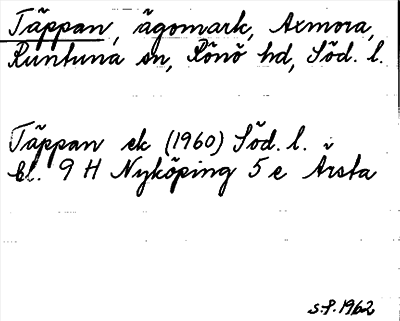 Täppan, ägomark, Axmora,
Runtuna sn, Rönö hd, Söd. l.
Täppan ek (1960) Söd. l.
bl. 9 H Nyköping 5 e Årsta
S.P. 1962